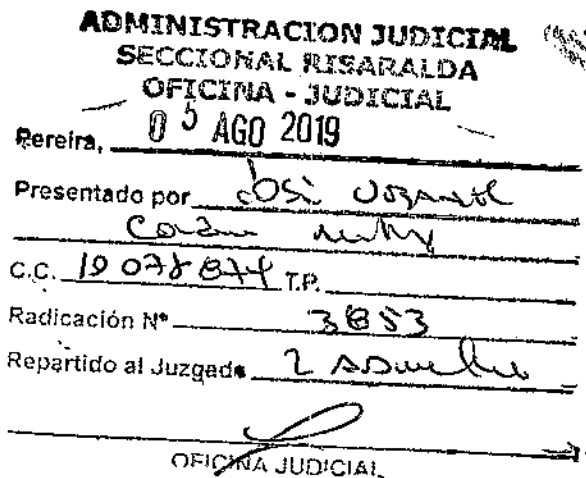 ADMINISTRACION JUDICIAL
SECCIONAL RISARALDA
OFICINA - JUDICIAL
Pereira, 05 AGO 2019
Presentado por José
C.C. 19 078 874 T.P.
Radicación Nº 3853
Repartido al Juzgado 2
OFICINA JUDICIAL